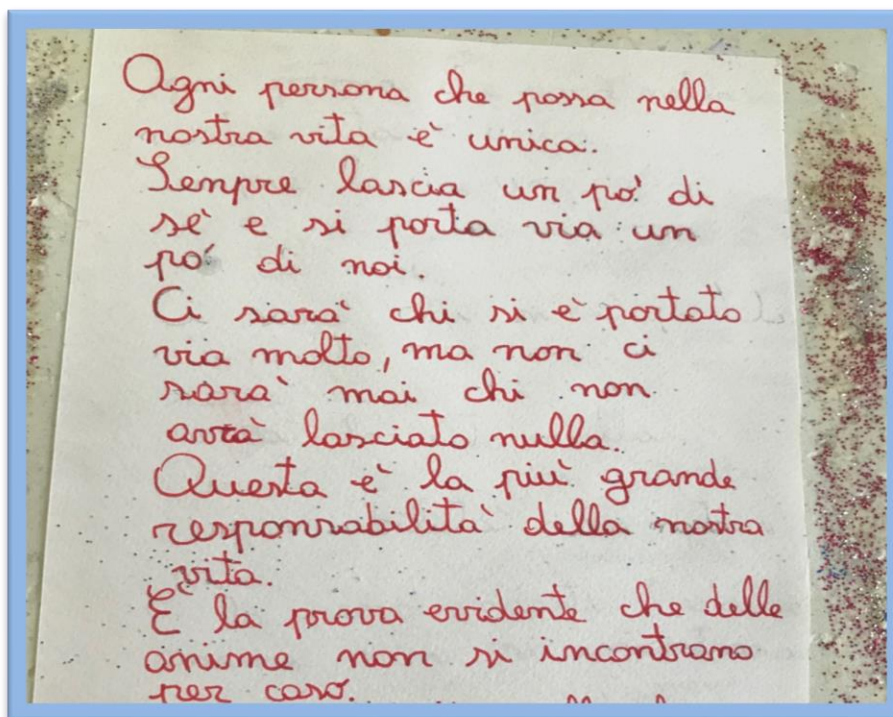 Ogni persona che passa nella
nostra vita è unica.
Sempre lascia un pò di
sè e si porta via un
pò di noi.
Ci sarà chi si è portato
via molto, ma non ci
sarà mai chi non
avrà lasciato nulla.
Questa è la più grande
responsabilità della nostra
vita.
È la prova evidente che delle
anime non si incontrano
per caso.